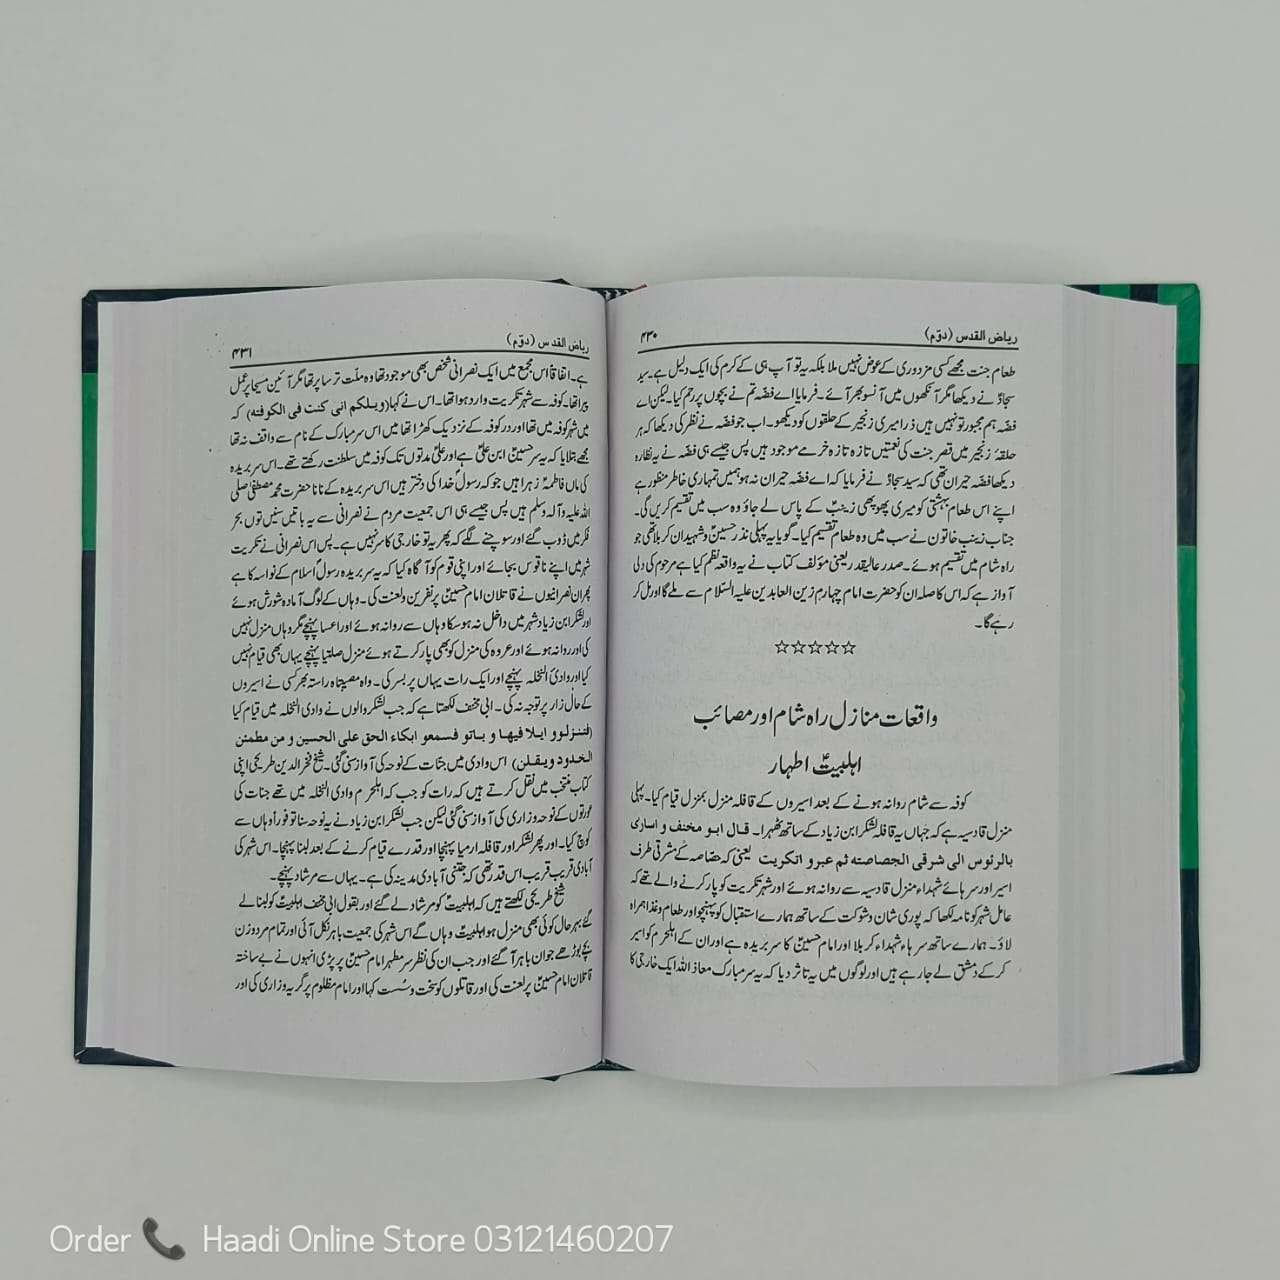 ریاض القدس (دوّم) ۴۳۰
طعام جنت مجھے کسی مزدوری کے عوض نہیں ملا بلکہ یہ تو آپ ہی کے کرم کی ایک دلیل ہے۔ سید
سجادؑ نے دیکھا مگر آنکھوں میں آنسو بھر آئے۔ فرمایا اے فضّہ تم نے بچوں پر رحم کیا۔ لیکن اے
فضّہ ہم مجبور تو نہیں ہیں ذرا میری زنجیر کے حلقوں کو دیکھو۔ اب جو فضّہ نے نظر کی دیکھا کہ ہر
حلقۂ زنجیر میں قصر جنت کی نعمتیں تازہ تازہ خرمے موجود ہیں پس جیسے ہی فضّہ نے یہ نظارہ
دیکھا فضّہ حیران تھی کہ سید سجادؑ نے فرمایا کہ اے فضّہ حیران نہ ہو ہمیں تمہاری خاطر منظور ہے
اپنے اس طعام بہشتی کو میری پھوپھی زینبؑ کے پاس لے جاؤ وہ سب میں تقسیم کریں گی۔
جناب زینب خاتون نے سب میں وہ طعام تقسیم کیا۔ گویا یہ پہلی نذر حسینؑ و شہیدان کربلا تھی جو
راہ شام میں تقسیم ہوئے۔ صدر عالیقدر یعنی مؤلف کتاب نے یہ واقعہ نظم کیا ہے مرحوم کی دلی
آواز ہے کہ اس کا صلہ ان کو حضرت امام چہارم زین العابدین علیہ السّلام سے ملے گا اور مل کر
رہے گا۔
☆☆☆☆☆
واقعات منازل راہ شام اور مصائب
اہلبیتؑ اطہار
کوفہ سے شام روانہ ہونے کے بعد اسیروں کے قافلہ منزل بمنزل قیام کیا۔ پہلی
منزل قادسیہ ہے کہ جہاں یہ قافلہ لشکر ابن زیاد کے ساتھ ٹھہرا۔ قال ابو مخنف و اساری
بالرئوس الی شرقی الجصاصته ثم عبرو اتکریت یعنی کہ حصّاصہ کے مشرقی طرف
اسیر اور سرہائے شہداء منزل قادسیہ سے روانہ ہوئے اور شہر تکریت کو پار کرنے والے تھے کہ
عامل شہر کو نامہ لکھا کہ پوری شان و شوکت کے ساتھ ہمارے استقبال کو پہنچو اور طعام و غذا ہمراہ
لاؤ۔ ہمارے ساتھ سرہاء شہداء کربلا اور امام حسینؑ کا سر بریدہ ہے اور ان کے اہلحرم کو اسیر
کر کے دمشق لے جا رہے ہیں اور لوگوں میں یہ تاثر دیا کہ یہ سر مبارک معاذ اللہ ایک خارجی کا
ریاض القدس (دوّم) ۴۳۱
ہے۔ اتفاقاً اس مجمع میں ایک نصرانی شخص بھی موجود تھا وہ ملّت ترسا پر تھا مگر آئین مسیحا پر عمل
پیرا تھا۔ کوفہ سے شہر تکریت وارد ہوا تھا۔ اس نے کہا (ویلکم انی کنت فی الکوفته) کہ
میں شہر کوفہ میں تھا اور در کوفہ کے نزدیک کھڑا تھا میں اس سر مبارک کے نام سے واقف نہ تھا
مجھے بتلایا کہ یہ سر حسینؑ ابن علیؑ ہے اور علیؑ مدتوں تک کوفہ میں سلطنت رکھتے تھے۔ اس سر بریدہ
کی ماں فاطمہؑ زہرا ہیں جو کہ رسولؐ خدا کی دختر ہیں اس سر بریدہ کے نانا حضرت محمد مصطفیٰ صلی
اللہ علیہ وآلہ وسلم ہیں پس جیسے ہی اس جمعیت مردم نے نصرانی سے یہ باتیں سنیں توں بحر
فکر میں ڈوب گئے اور سوچنے لگے کہ پھر یہ تو خارجی کا سر نہیں ہے۔ پس اس نصرانی نے تکریت
شہر میں اپنے ناقوس بجائے اور اپنی قوم کو آگاہ کیا کہ یہ سر بریدہ رسولؐ اسلام کے نواسہ کا ہے
پھر ان نصرانیوں نے قاتلان امام حسینؑ پر نفرین و لعنت کی۔ وہاں کے لوگ آمادہ شورش ہوئے
اور لشکر ابن زیاد شہر میں داخل نہ ہو سکا وہاں سے روانہ ہوئے اور اعسا پہنچے مگر وہاں منزل نہیں
کی اور روانہ ہوئے اور عروہ کی منزل کو بھی پار کرتے ہوئے منزل صلتیا پہنچے یہاں بھی قیام نہیں
کیا اور وادیٔ النخلہ پہنچے اور ایک رات یہاں پر بسر کی۔ واہ مصیبتاہ راستہ بھر کسی نے اسیروں
کے حال زار پر توجہ نہ کی۔ ابی مخنف لکھتا ہے کہ جب لشکر والوں نے وادی النخلہ میں قیام کیا
(فتنزلوو ایلا فیها و باتو فسمعو ابکاء الحق علی الحسین و من مطمئن
الخدود ویقلن) اس وادی میں جنّات کے نوحہ کی آواز سنی گئی۔ شیخ فخر الدین طریحی اپنی
کتاب منتخب میں نقل کرتے ہیں کہ رات کو جب کہ اہلحرم وادی النخلہ میں تھے جنات کی
عورتوں کے نوحہ و زاری کی آواز سنی گئی لیکن جب لشکر ابن زیاد نے یہ نوحہ سنا تو فوراً وہاں سے
کوچ کیا۔ اور پھر لشکر اور قافلہ ارمیا پہنچا اور قدرے قیام کرنے کے بعد لبنا پہنچا۔ اس شہر کی
آبادی قریب قریب اس قدر تھی کہ جتنی آبادی مدینہ کی ہے۔ یہاں سے مرشاد پہنچے۔
شیخ طریحی لکھتے ہیں کہ اہلبیتؑ کو مرشاد لے گئے اور بقول ابی مخنف اہلبیتؑ کو لبنا لے
گئے بہر حال کوئی بھی منزل ہو اہلبیتؑ وہاں گے اس شہر کی جمعیت باہر نکل آئی اور تمام مرد و زن
بچے بوڑھے جوان باہر آ گئے اور جب ان کی نظر سر مطہر امام حسینؑ پر پڑی انہوں نے بے ساختہ
قاتلان امام حسینؑ پر لعنت کی اور قاتلوں کو سخت و سُست کہا اور امام مظلوم پر گریہ و زاری کی اور
Order Haadi Online Store 03121460207